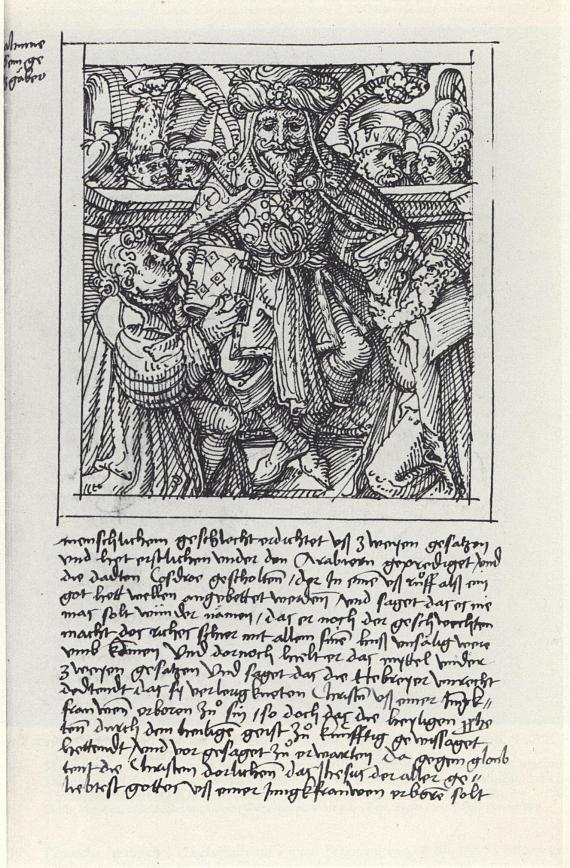 menschlichem geschlecht erdichtet uß 3weyen gesatzen
Und het erstlichen under den Arabiern geprediget und
die dadten Cosdroe gescholten / der In eine uß rüff als ein
got hett wellen angebettet werden / und saget das es nie
mas solt wunder nämen / das er noch der geschwechten
macht des riches schier mit allem sine huß unsälig were
umb kommen Und dornoch hielt er das mittel under
3weyen gesatzen Und saget das die Hebreyer unrecht
dedtendt das sy verlougkneten Christum uß einer Jungk-
frauwen erboren zů sin / so doch das die heyligen
ten durch dem heilige geist zů künfftig gewissaget
hettendt / und vor gesaget zů erwarten Da gegen gloub
tent die Christen dorlichen das Jhesus der aller ge-
liebtest gottes uß einer Jungkfrauwen erbore solt